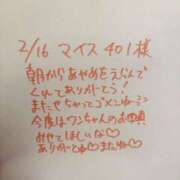 2/16 マイス 401様
朝からあやめをえらんで
くれてありがとう!
またせちゃってゴメンねーっ
今度はワンちゃんのお顔
みせてほしいな♡
ありがーとね♡またね♡